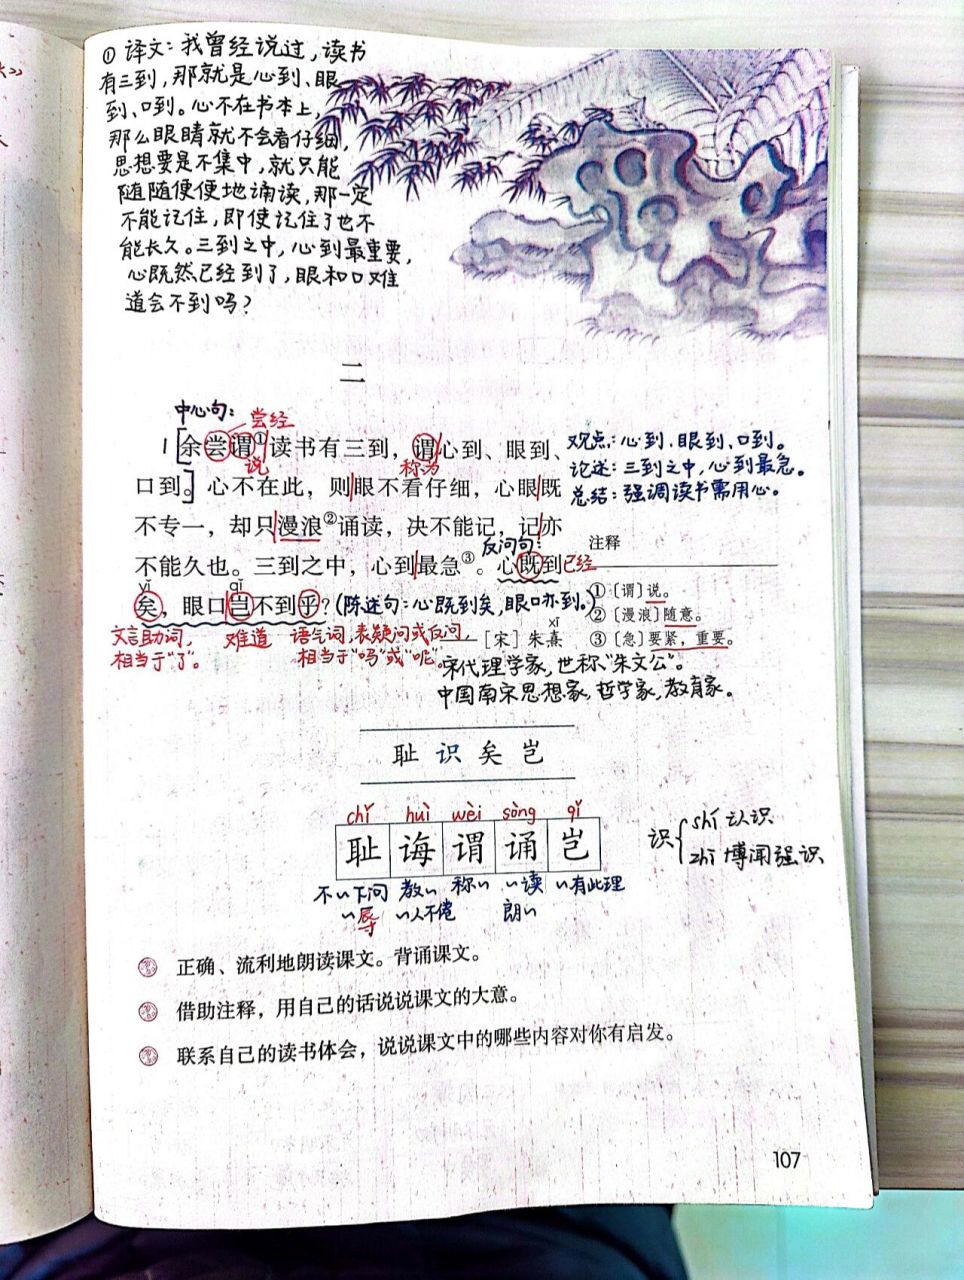 ①译文：我曾经说过，读书
有三到，那就是心到、眼
到、口到。心不在书本上，
那么眼睛就不会看仔细，
思想要是不集中，就只能
随随便便地诵读，那一定
不能记住，即使记住了也不
能长久。三到之中，心到最重要，
心既然已经到了，眼和口难
道会不到吗？
二
中心句：
尝经
1[余尝谓①读书有三到，谓心到、眼到、
说
称为
口到。]心不在此，则眼不看仔细，心眼既
不专一，却只漫浪②诵读，决不能记，记亦
反问句：
不能久也。三到之中，心到最急③。心既到
已经
yǐ qǐ
矣，眼口岂不到乎？(陈述句：心既到矣，眼口亦到。)
文言助词，
相当于"了"。
难道
语气词，表疑问或反问，
相当于"吗"或"呢"。
观点：心到、眼到、口到。
论述：三到之中，心到最急。
总结：强调读书需用心。
注释
①〔谓〕说。
②〔漫浪〕随意。
③〔急〕要紧，重要。
xī
——[宋]朱熹
宋代理学家，世称"朱文公"。
中国南宋思想家，哲学家，教育家。
耻 识 矣 岂
chǐ huì wèi sòng qǐ
耻 诲 谓 诵 岂
不~下问 教~ 称~ ~读 ~有此理
~辱 ~人不倦 朗~
识{shí 认识
zhì 博闻强识
正确、流利地朗读课文。背诵课文。
借助注释，用自己的话说说课文的大意。
联系自己的读书体会，说说课文中的哪些内容对你有启发。
107